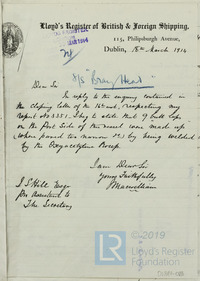 Lloyd's Register of British & Foreign Shipping,
113, Philipsburgh Avenue,
Dublin, 18th March 1914
S/S "Bray Head"
Dear Sir
In reply to the enquiry contained in
the closing letter of the 16th inst, respecting my
Report No 3351, I beg to state that 9 butt laps
on the Port Side of the vessel were made up
when found too narrow by being welded
by the Oxyacetylene Process.
I am Dear Sir
Yours Faithfully
The Secretary
©2019
Lloyd's Register
Foundation